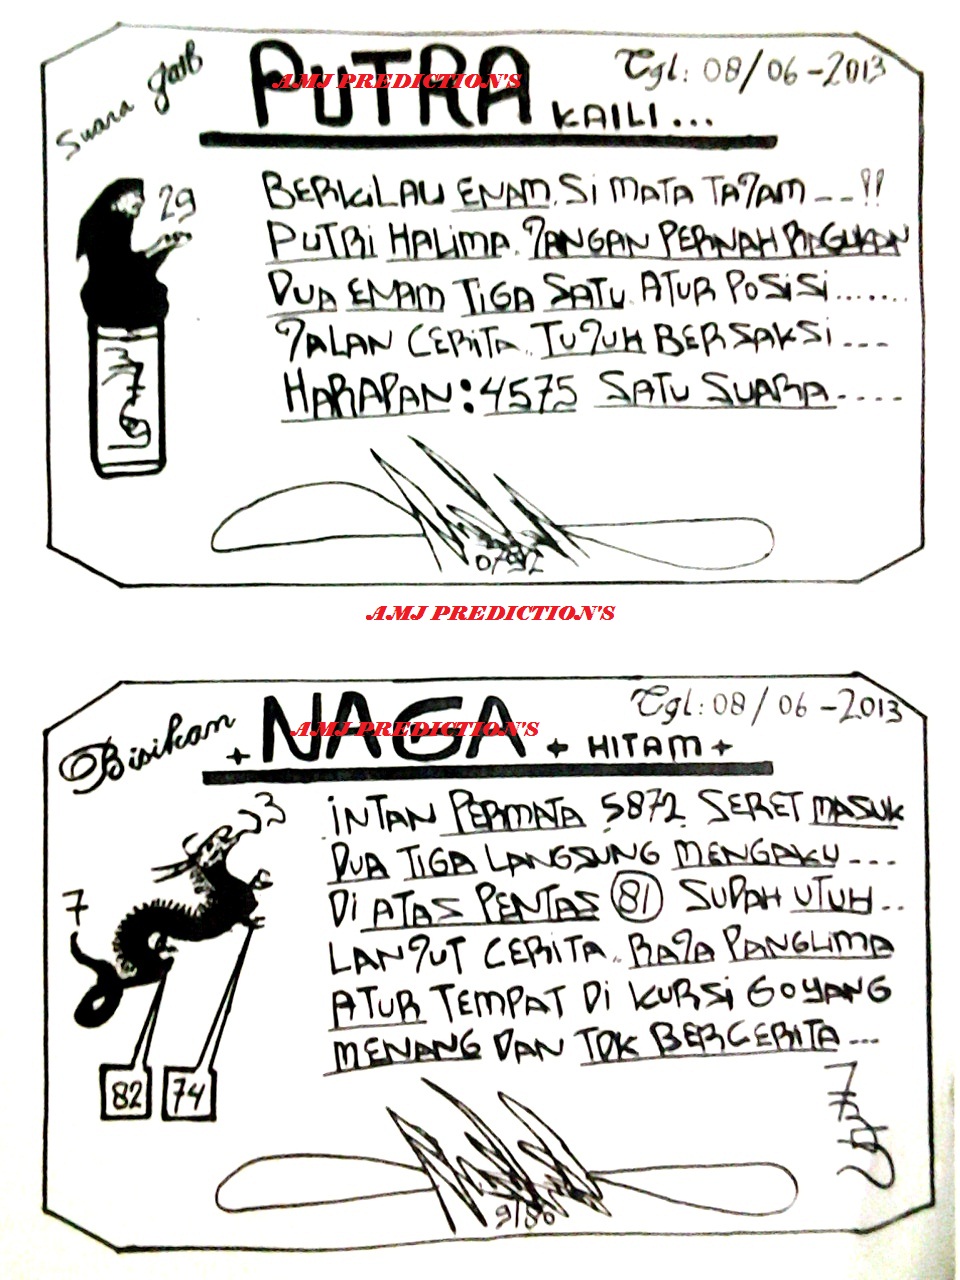 Suara Jaib
PUTRA
AMJ PREDICTION'S
KAILI...
Tgl: 08/06-2013
29
BERKILAU ENAM. Si MATA TAJAM ---!!
PUTRI HALIMA. JANGAN PERNAH RAGUKAN
DUA ENAM TIGA SATU. ATUR POSISI.......
JALAN CERITA.. TUJUH BERSAKSI ---
HARAPAN: 4575 SATU SUARA ----
AMJ PREDICTION'S
Bisikan
+ NAGA + HITAM +
AMJ PREDICTION'S
Tgl: 08/06-2013
23
7
INTAN PERMATA 5872. SERET MASUK
DUA TIGA LANGSUNG MENGAKU ---
Di ATAS PENTAS 81 SUDAH UTUH..
LANJUT CERITA.. RAJA PANGLIMA
ATUR TEMPAT Di KURSI GOYANG
MENANG DAN TDK BERCERITA ---
82 74
9/86